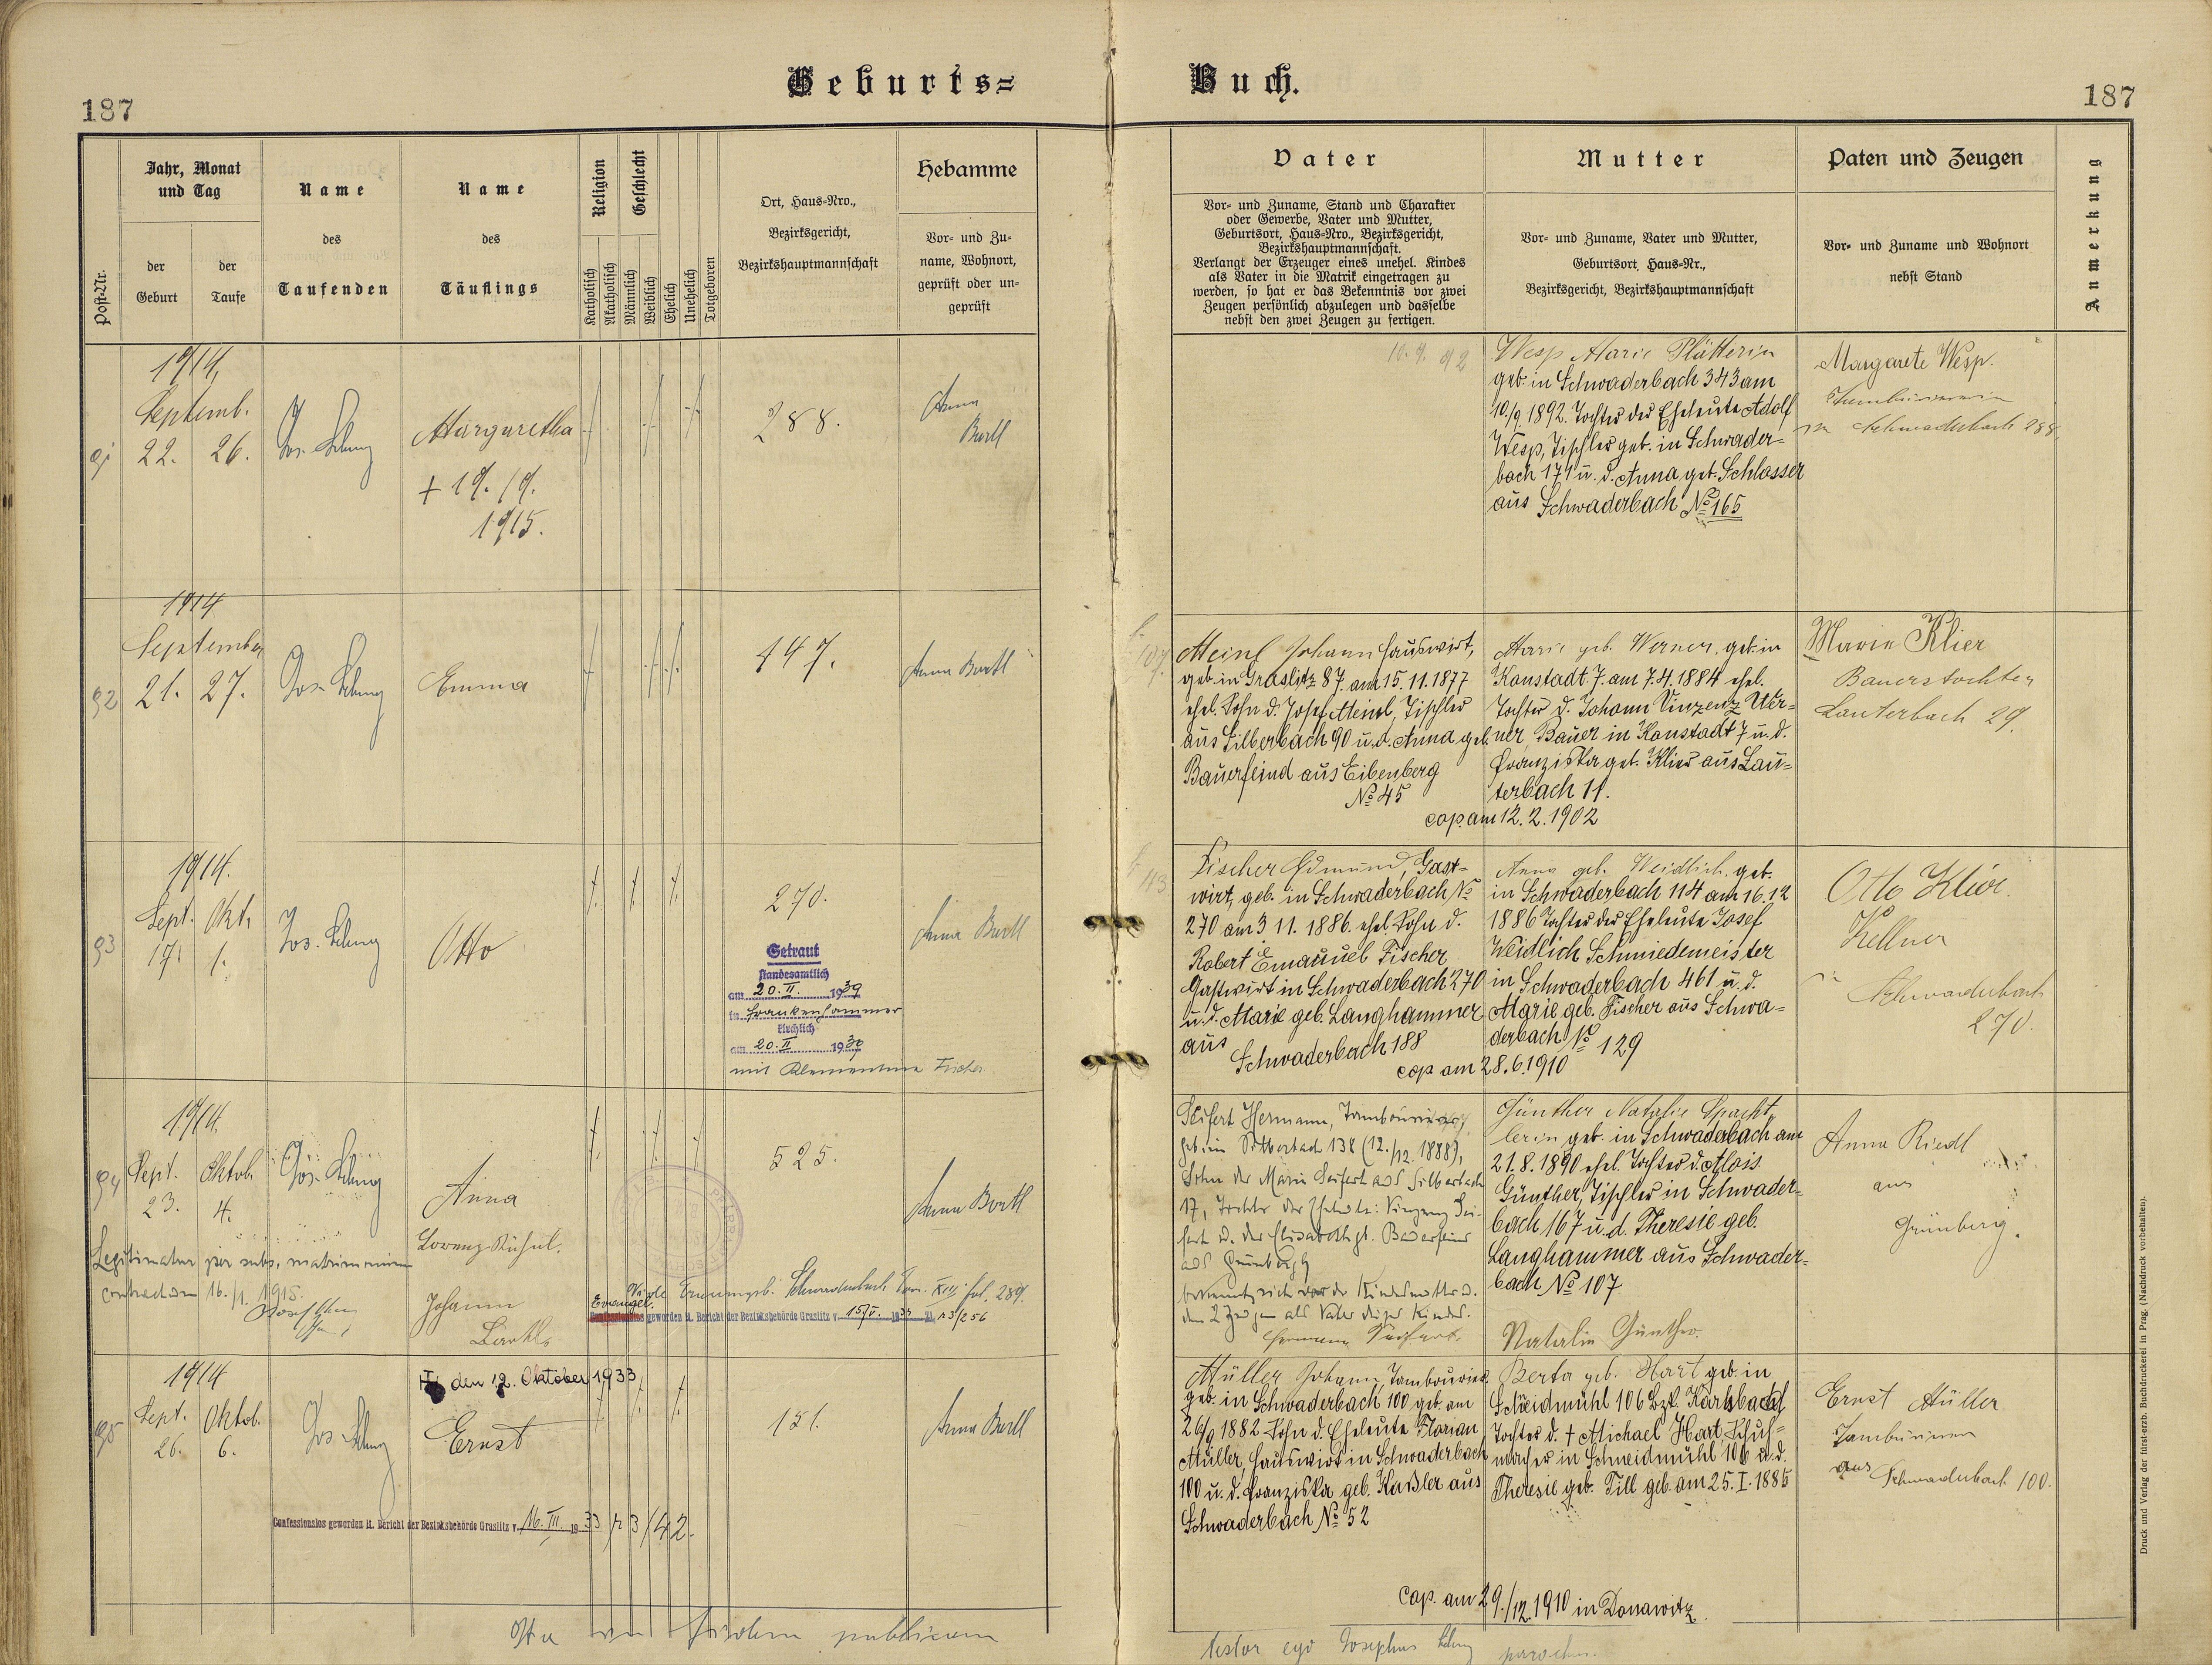 Geburts= Buch.
187 187
Post-Nr.
Jahr, Monat
und Tag
der
Geburt
der
Taufe
Name
des
Taufenden
Name
des
Täuflings
Religion
Katholisch
Akatholisch
Geschlecht
Männlich
Weiblich
Ehelich
Unehelich
Totgeboren
Ort, Haus-Nro.,
Bezirksgericht,
Bezirkshauptmannschaft
Hebamme
Vor- und Zu-
name, Wohnort,
geprüft oder un-
geprüft
Vater
Vor- und Zuname, Stand und Charakter
oder Gewerbe, Vater und Mutter,
Geburtsort, Haus-Nro., Bezirksgericht,
Bezirkshauptmannschaft.
Verlangt der Erzeuger eines unehel. Kindes
als Vater in die Matrik eingetragen zu
werden, so hat er das Bekenntnis vor zwei
Zeugen persönlich abzulegen und dasselbe
nebst den zwei Zeugen zu fertigen.
Mutter
Vor- und Zuname, Vater und Mutter,
Geburtsort, Haus-Nr.,
Bezirksgericht, Bezirkshauptmannschaft
Paten und Zeugen
Vor- und Zuname und Wohnort
nebst Stand
Anmerkung
91
1914
Septemb.
22. 26.
Margaretha
+ 19./9.
1915.
288.
Anna
Bartl
10. 9. 92
Wesp Marie Plätterin
geb. in Schwaderbach 343 am
10./9. 1892. Tochter der Eheleute Adolf
Wesp, Tischler geb. in Schwader-
bach 171 u. d. Anna geb. Schlosser
aus Schwaderbach No 165
Margarete Wesp.
in Schwaderbach 288.
92
1914
September
21. 27.
Emma
147.
Anna Bartl
107.
Meinl Johann Hauswirt,
geb. in Graslitz 87. am 15.11.1877
ehel. Sohn d. Josef Meinl, Tischler
aus Silberbach 90 u. d. Anna geb.
Bauerfeind aus Eibenberg
No 45
Marie geb. Werner, geb. in
Konstadt 7. am 7.4.1884 ehel.
Tochter d. Johann Vinzenz Wer-
ner, Bauer in Konstadt 7 u. d.
Franziska geb. Klier aus Lau-
terbach 11.
cop. am 12.2.1902
Marie Klier
Bauerstochter
Lauterbach 29.
93
1914.
Sept. Okt.
17. 1.
Otto
270.
Getraut
standesamtlich
am 20. II. 1939
in Frankenhammer
kirchlich
am 20. II 1939
mit Klementine Fischer
Anna Bartl
113
Fischer Edmund, Gast-
wirt, geb. in Schwaderbach No
270 am 3 11. 1886. ehel. Sohn d.
Robert Emanuel Fischer
Gastwirt in Schwaderbach 270
u. d. Marie geb. Langhammer
aus
Schwaderbach 188
Anna geb. Weidlich, geb.
in Schwaderbach 114 am 16.12
1886 Tochter der Eheleute Josef
Weidlich Schmiedemeister
in Schwaderbach 461 u. d.
Marie geb. Fischer aus Schwa-
derbach No 129
cop am 28.6.1910
Otto Klier.
Kellner
in
Schwaderbach
270.
94
1914.
Sept. Oktob.
23. 4.
Anna
Legitimatur per subs. matrimonium
contractum 16./1. 1915.
Johann
525.
Anna Bartl
Evangel.
geworden lt. Bericht der Bezirksbehörde Graslitz v. 15/V. 1933
Seifert Hermann, Tambourierer,
geb. in Silberbach 138 (12./12. 1888),
Sohn der Marie Seifert aus Silberbach
17, Tochter der Eheleute: Vinzenz Sei-
fert u. der Elisabeth gb. Bauerfeind
aus Grünberg
bekennt sich vor der Kindesmutter u.
den 2 Zeugen als Vater dieses Kindes.
Hermann Seifert.
Günther Natalie Spacht-
lerin geb. in Schwaderbach am
21.8.1890 ehel. Tochter d. Alois
Günther, Tischler in Schwader-
bach 167 u. d. Theresie geb.
Langhammer aus Schwader-
bach No 107
Natalie Günther.
Anna Riedl
aus
Grünberg.
95
1914
Sept. Oktob.
26. 6.
den 12. Oktober 1933
Ernst
151.
Anna Bartl
Confessionslos geworden lt. Bericht der Bezirksbehörde Graslitz v. 16. III. 1933
Müller Johann, Tambourier.
geb. in Schwaderbach 100 geb. am
26/9 1882 Sohn d. Eheleute Florian
Müller, Hauswirt in Schwaderbach
100 u. d. Franziska geb. Kaßler aus
Schwaderbach No 52
Berta geb. Hart geb. in
Schneidmühl 106 Bzk. Karlsbad
Tochter d. + Michael Hart Schuh-
macher in Schneidmühl 106 u. d.
Theresie geb. Till geb. am 25.I.1885
cap. am 29./12. 1910 in Donawitz.
Ernst Müller
aus Schwaderbach 100.
publicam
testor ego Josephus parochus.
Druck und Verlag der fürst-erzb. Buchdruckerei in Prag. (Nachdruck vorbehalten).